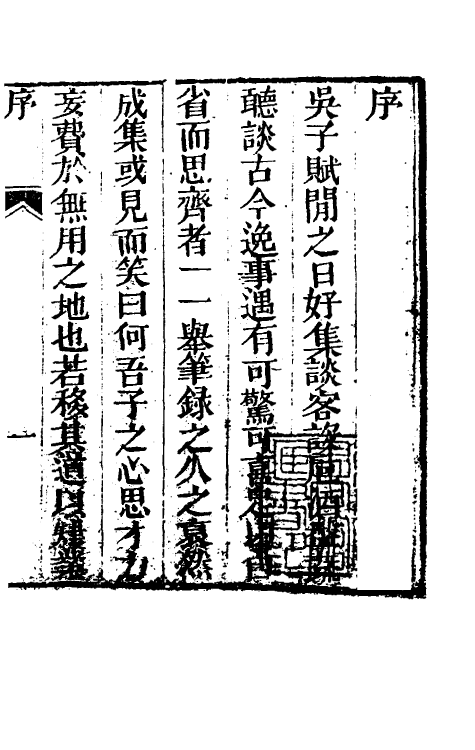 序
吳子賦閒之日好集談客
聽談古今逸事遇有可驚可
省而思齊者一一舉筆録之久之裒然
成集或見而笑曰何吾子之心思才力
妄費於無用之地也若移其道以
序
一